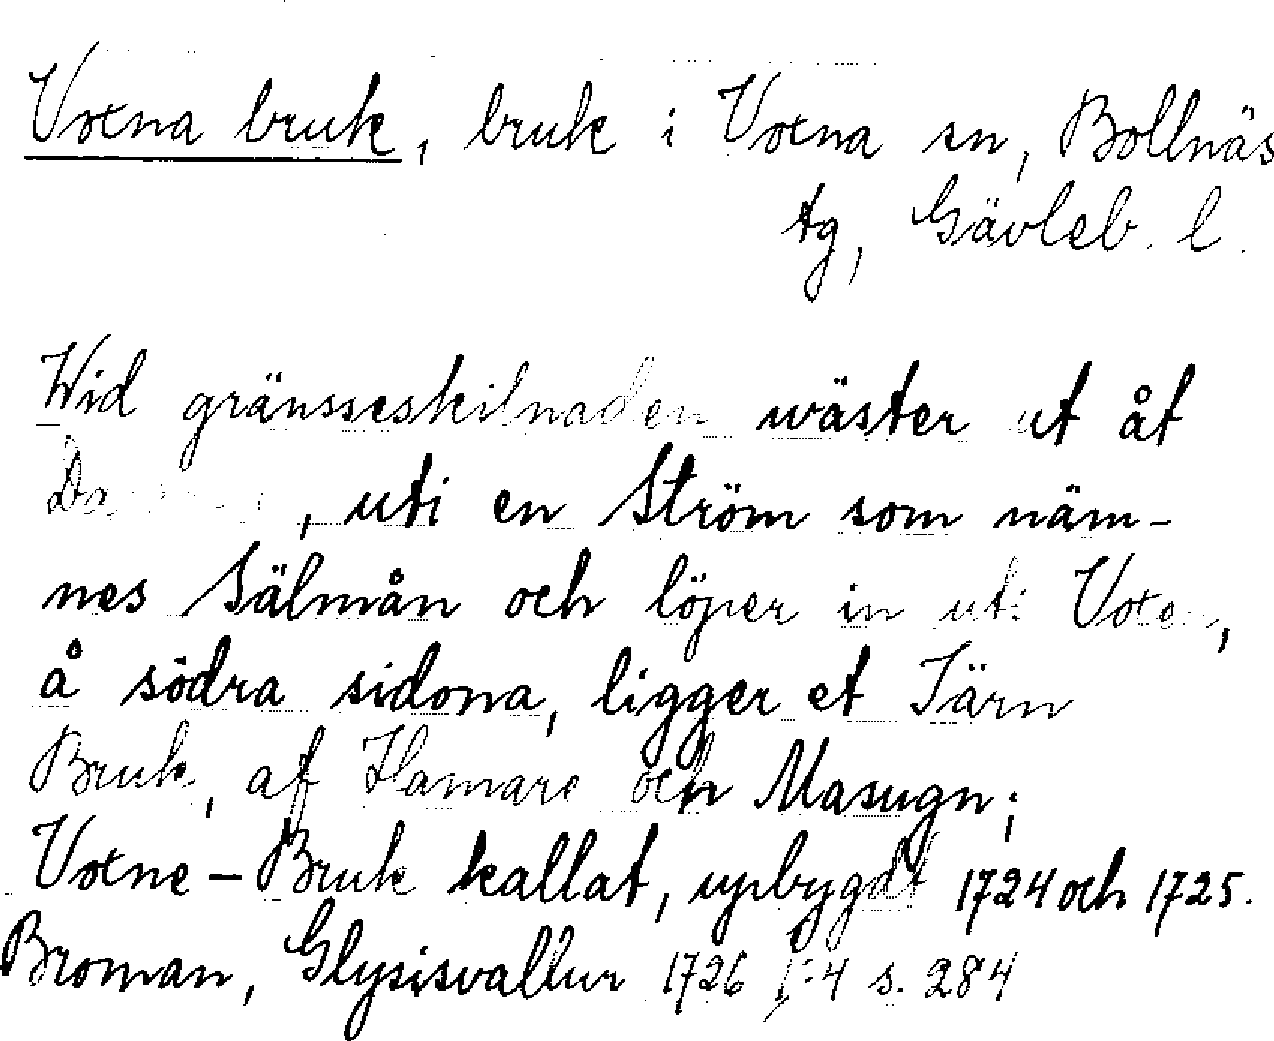 Voxna bruk, bruk i Voxna sn, Bollnäs
tg, Gävleb. l.
Wid gränsseskilnaden wäster ut åt
, uti en Ström som näm-
nes Sälmån och löper in uti Voxen,
å södra sidona, ligger et Järn
Bruk, af Hamare och Masugn;
Voxne-Bruk kallat, upbygdt 1724 och 1725.
Broman, Glysisvallur 1726 I:4 s. 284